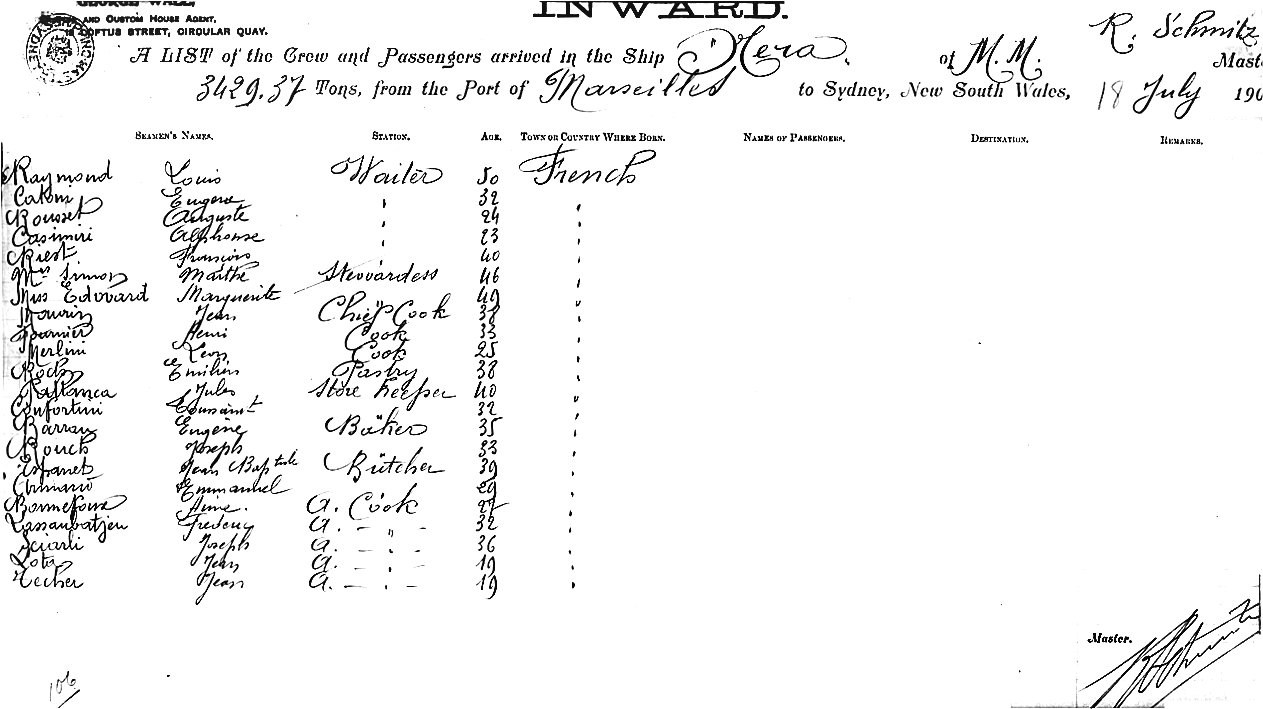 INWARD.
AND CUSTOM HOUSE AGENT,
LOFTUS STREET, CIRCULAR QUAY.
R. Schmitz
A LIST of the Crew and Passengers arrived in the Ship Néra, of M.M.
3429.37 Tons, from the Port of Marseilles to Sydney, New South Wales, 18 July 190
SEAMEN'S NAMES. STATION. AGE. TOWN OR COUNTRY WHERE BORN. NAMES OF PASSENGERS. DESTINATION. REMARKS.
Raymond Louis Waiter 50 French
Eugene " 32 "
Rousset Auguste " 24 "
Casimiri Alphonse " 23 "
François " 40 "
Mrs Simon Marthe Stewardess 46 "
Miss Edouard Marguerite " 49 "
Mourin Jean Chief Cook 38 "
Fournier Henri Cook 33 "
Merlini Leon Cook 25 "
Roch Emilien Pastry 38 "
Jules Store Keeper 40 "
Confortini Toussaint " 32 "
Barrau Eugène Baker 35 "
Rouch Joseph " 33 "
Espanet Jean Baptiste Butcher 39 "
Emmanuel " 29 "
Bonnefoux Aimé. A. Cook 27 "
A. — " — 32 "
Sciarli Joseph A. — " — 36 "
Lota Jean A. — " — 19 "
Techer Jean A. — " — 19 "
Master.
106